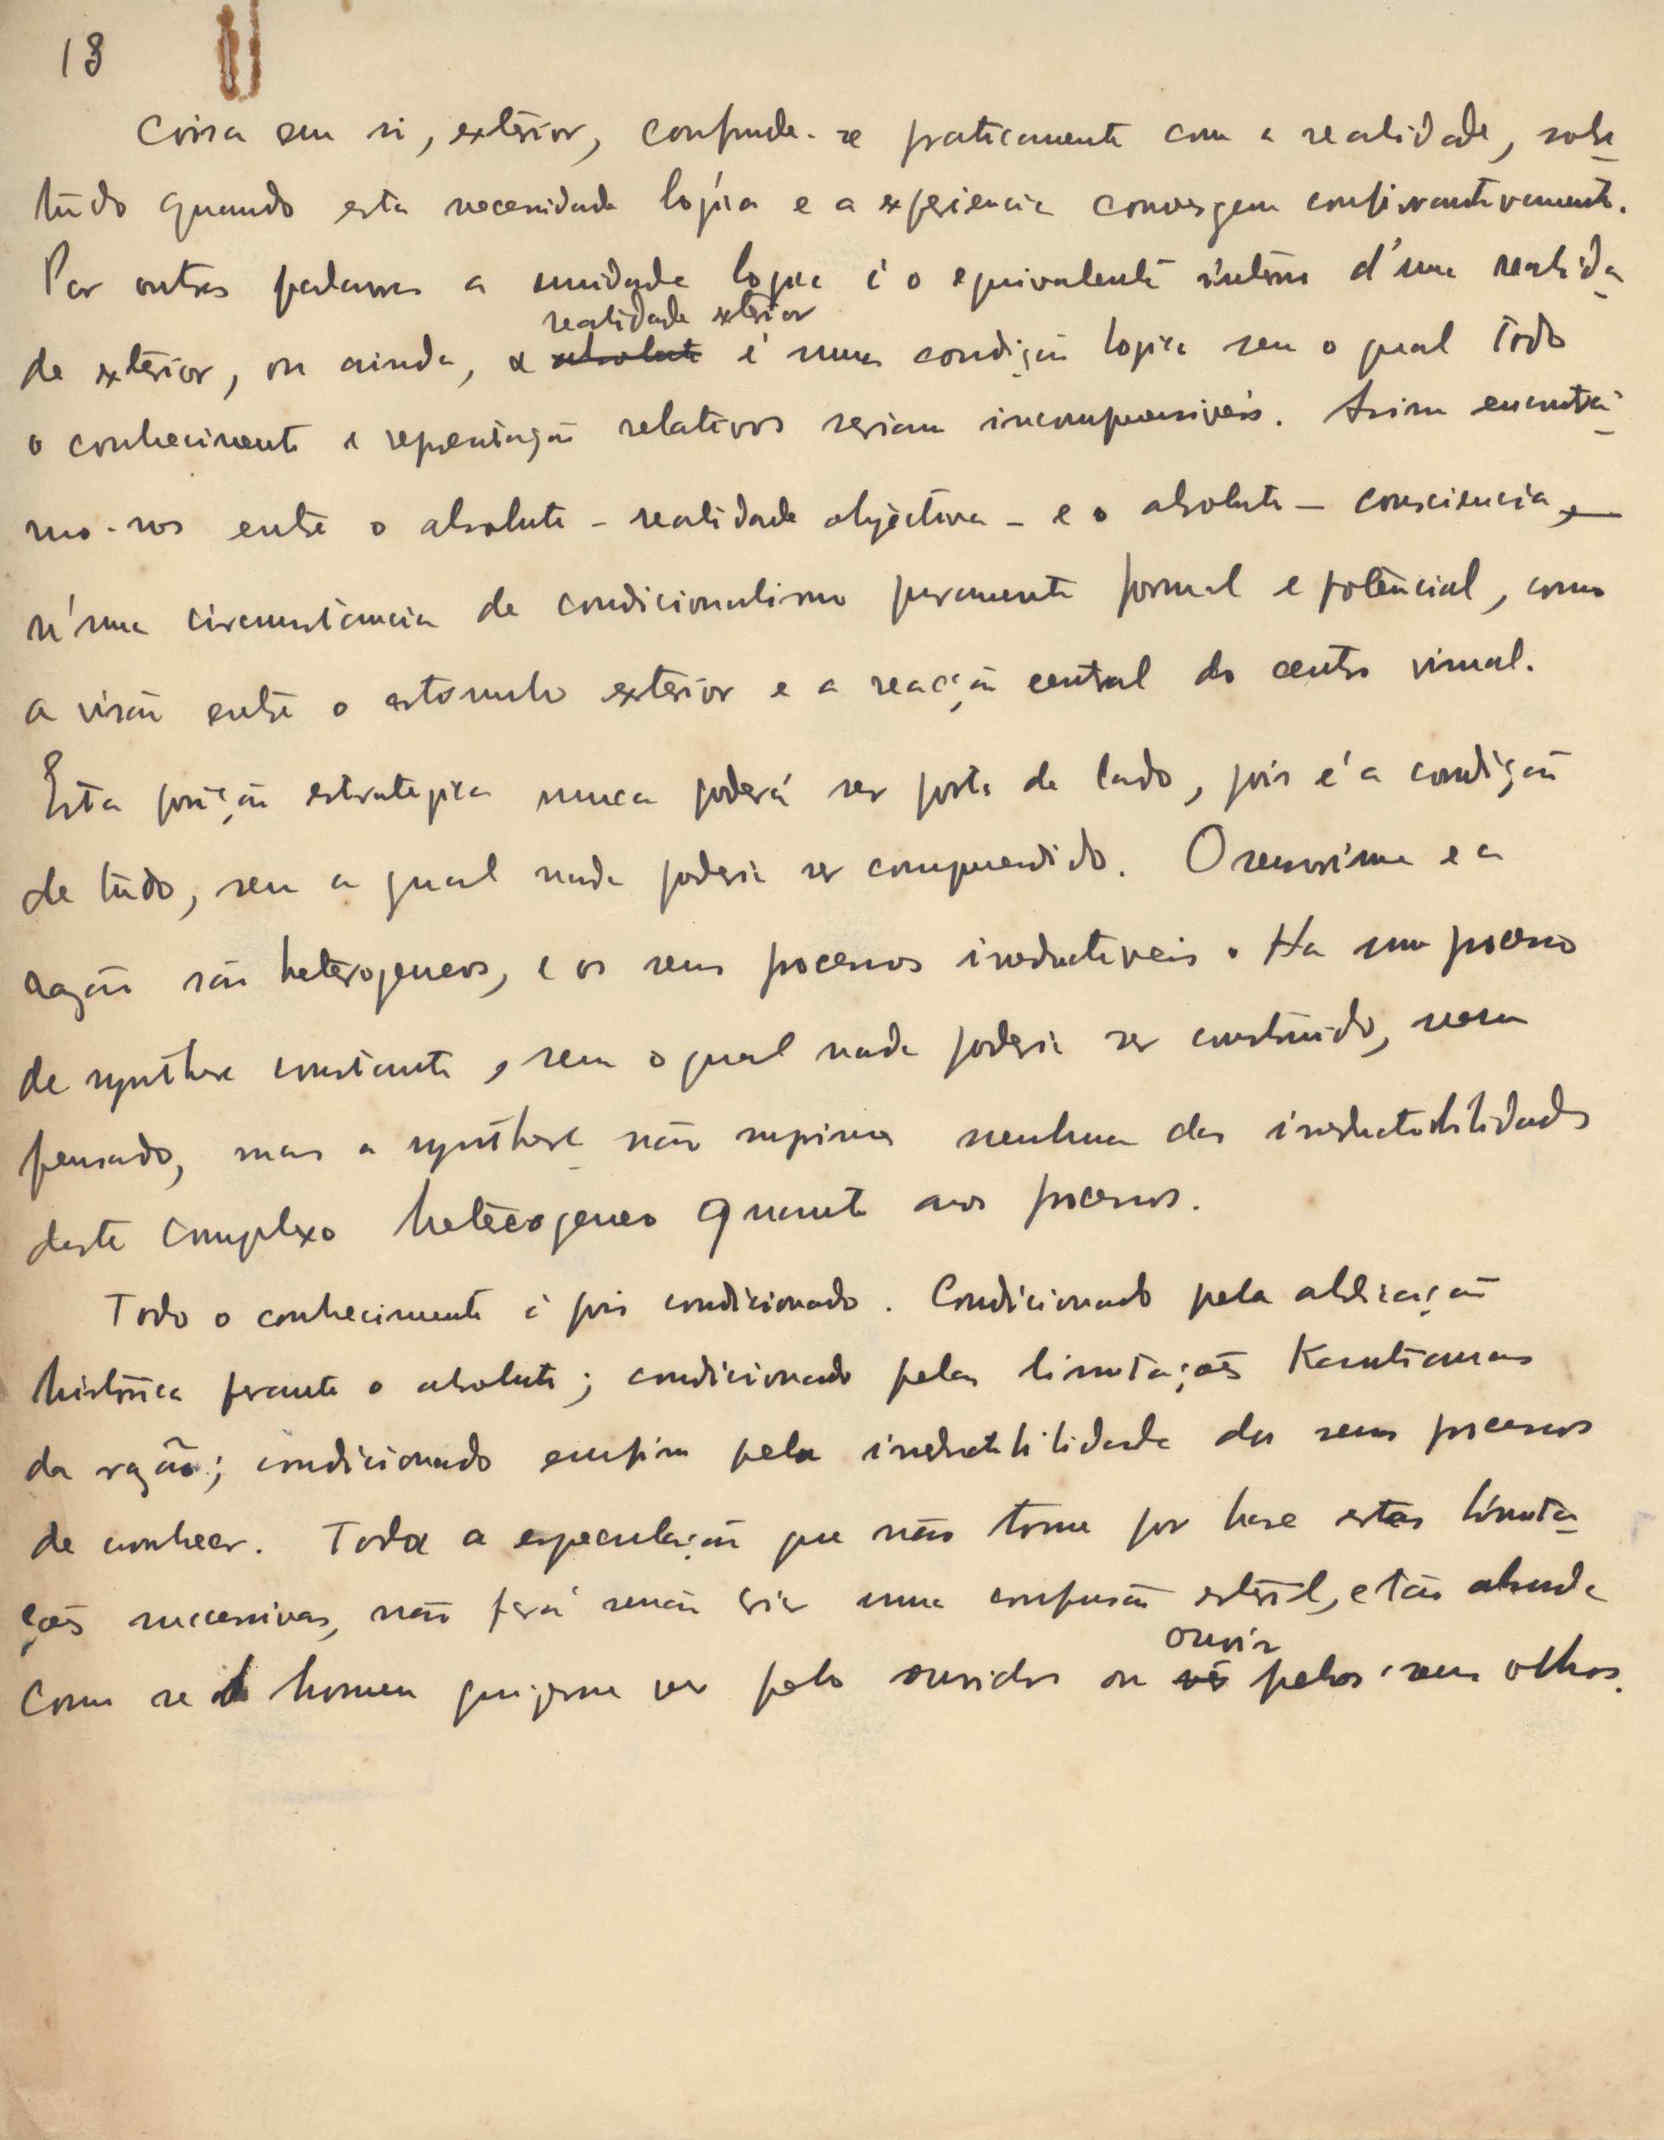 13
Coisa em si, exterior, confunde-se praticamente com a realidade, sobre
tudo quando esta necessidade logica e a experiencia convergem confirmativamente.
Por outras palavras a unidade logica é o equivalente interno d'uma realida
realidade exterior
de exterior, ou ainda, a absoluto é uma condição logica sem o qual todo
o conhecimento e representação relativos seriam incompreensiveis. Assim encontrá
mo-nos entre o absoluto - realidade objectiva - e o absoluto - consciencia,
n'uma circumstancia de condicionalismo puramente formal e potencial, como
a visão entre o estimulo exterior e a reacção central do centro visual.
Esta posição estrategica nunca poderá ser posta de lado, pois é a condição
de tudo, sem a qual nada poderia ser comprehendido. O sensorium e a
razão são heterogeneos, e os seus processos irreductiveis. Ha um processo
de synthese constante, sem o qual nada poderia ser construido, nem
pensado, mas a synthese não suprime nenhuma das irreductibilidades
deste complexo heterogeneo quanto aos processos.
Todo o conhecimento é pois condicionado. Condicionado pela
historica perante o absoluto; condicionado pelas limitações Kantianas
da razão; condicionado enfim pela irreductibilidade dos seus processos
de conhecer. Toda a especulação que não tome por base estas limita
ções successivas, não fará senão criar uma confusão esteril, e tão absurda
ouvir
como se o homem quizesse ver pelos ouvidos ou ver pelos seus olhos.